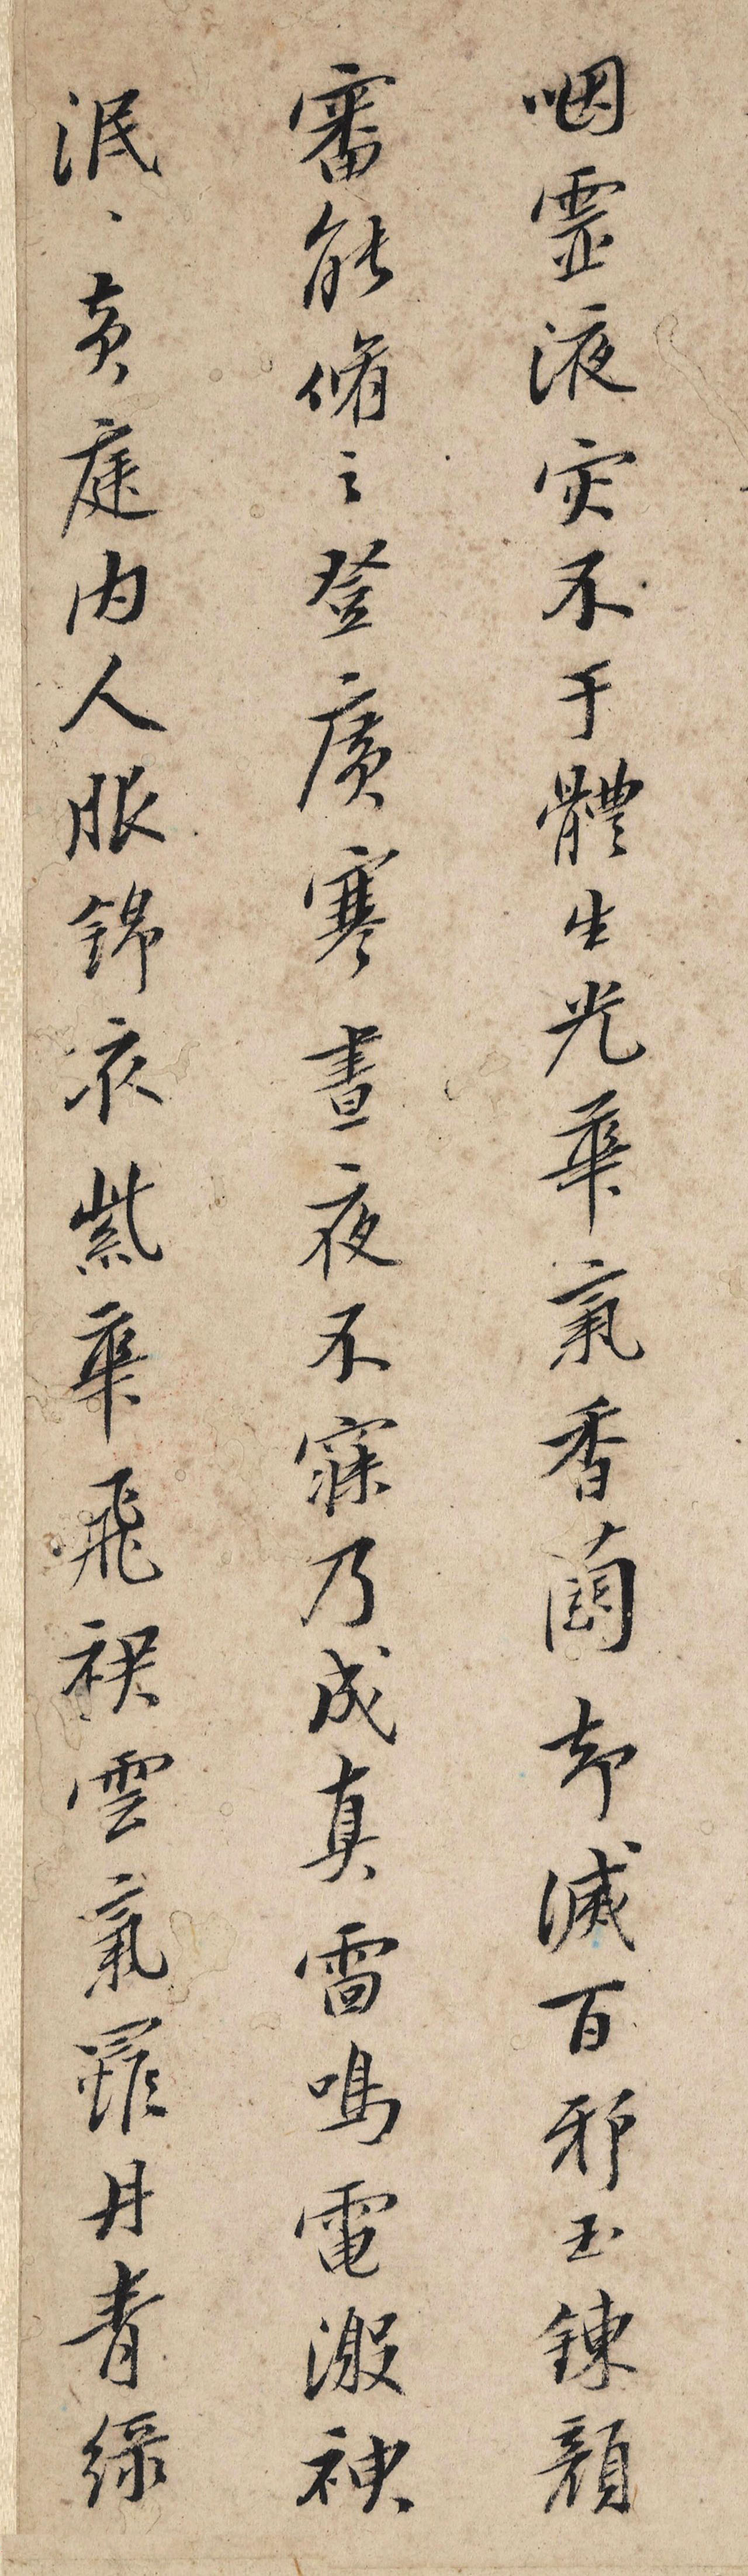 咽靈液灾不干體生光華氣香蘭却滅百邪玉鍊顏
審能脩之登廣寒晝夜不寐乃成真雷鳴電激神
泯、黃庭内人服錦衣紫華飛裙雲氣羅丹青綠